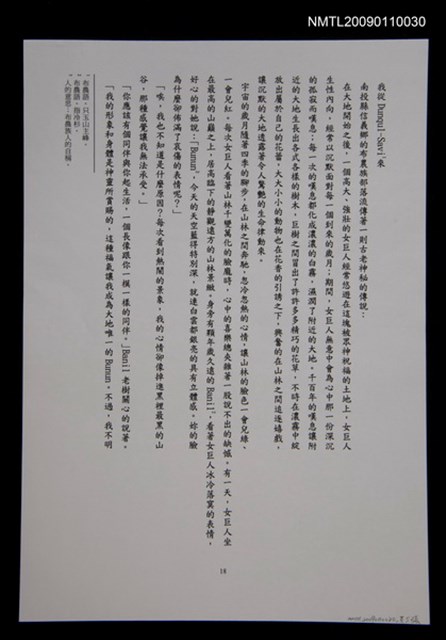 NMTL20090110030
我從 Dunqul-Savi¹ 來
南投縣信義鄉的布農族部落流傳著一則古老神秘的傳說：
在大地開始之後，一個高大、強壯的女巨人經常悠遊在這塊被眾神祝福的土地上，女巨人
生性內向，經常以沉默面對每一個到來的歲月；期間，女巨人無意中會為心中那一份深沉
的孤寂而嘆息；每一次的嘆息都化成濃濃的白霧，濕潤了附近的大地。千百年的嘆息讓附
近的大地生長出各式各樣的樹木，巨樹之間冒出了許許多多精巧的花草，不時在濃霧中綻
放出屬於自己的花蕾。大大小小的動物也在花香的引誘之下，興奮的在山林之間追逐嬉戲，
讓沉默的大地透露著令人驚艷的生命律動來。
宇宙的歲月隨著四季的腳步，在山林之間奔馳，忽冷忽熱的心情，讓山林的臉色一會兒綠、
一會兒紅。每次女巨人看著山林千變萬化的臉龐時，心中的喜樂總夾雜著一股說不出的缺憾，有一天，女巨人坐
在最高的山巔之上，居高臨下的靜觀遠方的山林景緻。身旁有顆年歲久遠的 Banil²，看著女巨人冰冷落寞的表情，
好心的對她說：「Bunun³，今天的天空藍得特別深，就連白雲都銀亮的具有立體感，妳的臉
為什麼卻佈滿了哀傷的表情呢？」
「唉，我也不知道是什麼原因？每次看到熱鬧的景象，我的心情卻像掉進黑裡最黑的山
谷，那種感覺讓我無法承受。」
「你應該有個同伴與你起生活，一個長像跟你一模一樣的同伴。」Banil 老樹關心的說著。
「我的形象和身體是神靈所賞賜的，這種福氣讓我成為大地唯一的 Bunun。不過，我不明
布農語，只玉山主峰。
布農語，指冷杉。
人的意思；布農族人的自稱。
18